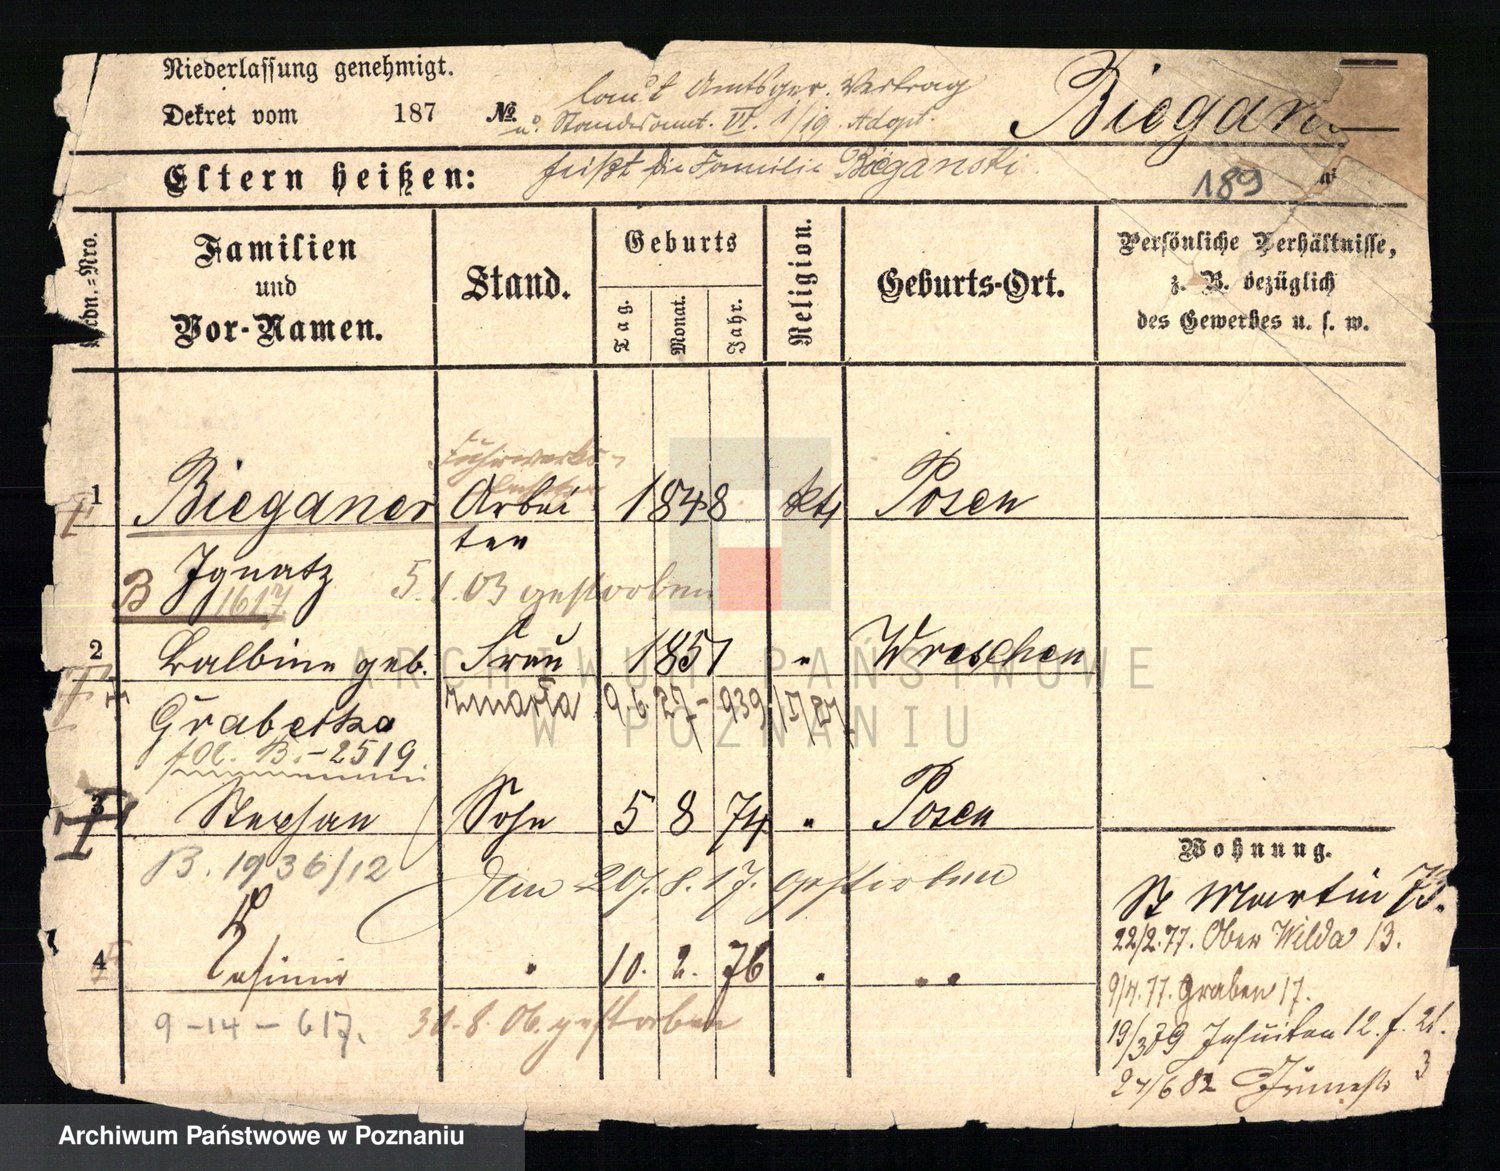 Niederlassung genehmigt.
Dekret vom 187 №
laut Amtsger. Vertrag
u. Standesamt. VI. 1/19 Adopt.
Biegan
Eltern heißen:
heißt die Familie Bieganski.
189
Familien und Vor-Namen.
Stand.
Geburts
Tag.
Monat.
Jahr.
Religion.
Geburts-Ort.
Persönliche Verhältnisse,
z. B. bezüglich
des Gewerbes u. s. w.
1 Bieganer Arbei 1848 kth Posen
ter
Ignatz 5.1.03 gestorben
B 1617
2 Balbine geb. Frau 1851 " Wreschen
Grabetka zmarła 9.6.27 - 939/
fol. B. - 2519.
3 Stephan Sohn 5 8 74 " Posen
B. 1936/12 Am 20.8.17. gestorben
4 Kasimir " 10. 2. 76 " "
9-14-617. 30.8.06. gestorben
Wohnung.
St Martin 73.
22/2.77. Ober Wilda 13.
9/4.77. Graben 17.
19/3 79 Jesuiten 12. f. 21.
24/6 82 3
ARCHIWUM PAŃSTWOWE
W POZNANIU
Archiwum Państwowe w Poznaniu